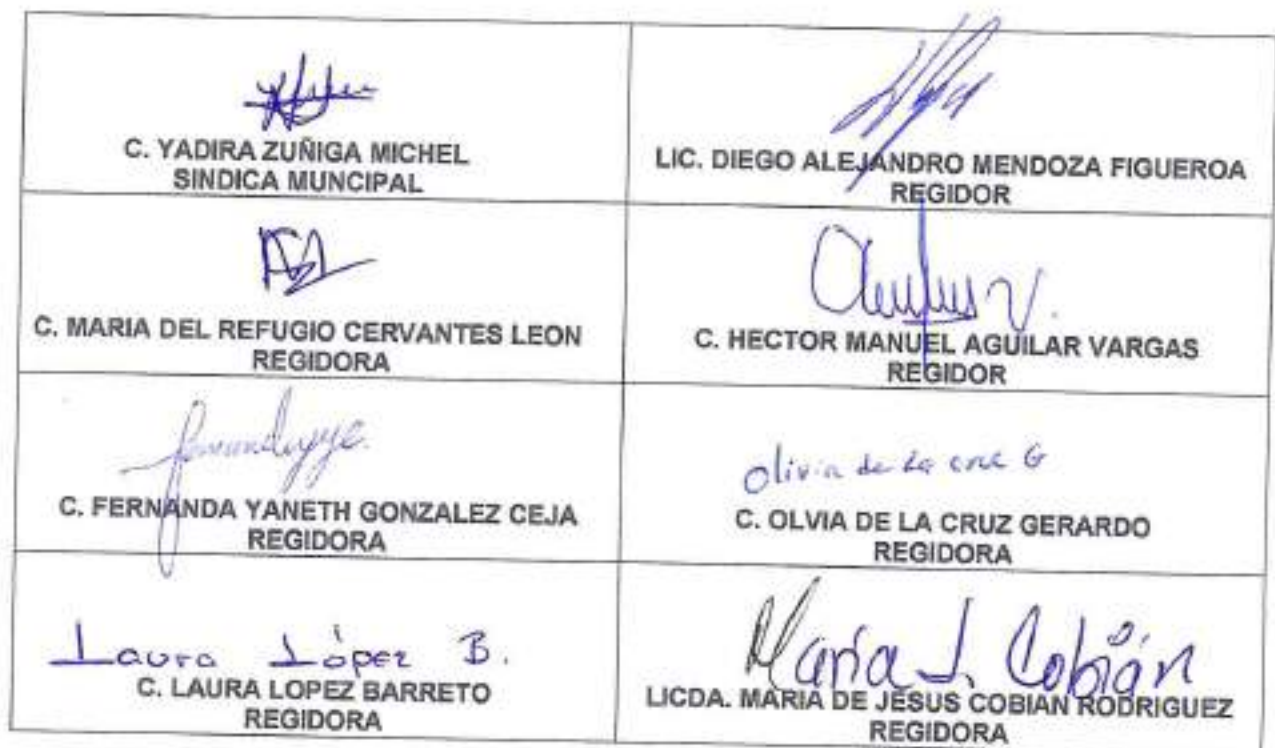 C. YADIRA ZUÑIGA MICHEL
SINDICA MUNCIPAL
LIC. DIEGO ALEJANDRO MENDOZA FIGUEROA
REGIDOR
C. MARIA DEL REFUGIO CERVANTES LEON
REGIDORA
C. HECTOR MANUEL AGUILAR VARGAS
REGIDOR
C. FERNANDA YANETH GONZALEZ CEJA
REGIDORA
Olivia de la cruz G
C. OLVIA DE LA CRUZ GERARDO
REGIDORA
Laura López B.
C. LAURA LOPEZ BARRETO
REGIDORA
María J. Cobián
LICDA. MARIA DE JESUS COBIAN RODRIGUEZ
REGIDORA